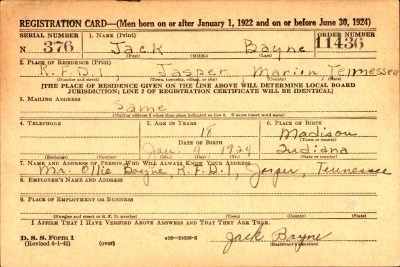 REGISTRATION CARD—(Men born on or after January 1, 1922 and on or before June 30, 1924)
SERIAL NUMBER 1. NAME (Print) ORDER NUMBER
N 376 Jack Bayne 11436
(First) (Middle) (Last)
2. PLACE OF RESIDENCE (Print)
R.F.D.1, Jasper, Marion, Tennessee
(Number and street) (Town, township, village, or city) (County) (State)
[THE PLACE OF RESIDENCE GIVEN ON THE LINE ABOVE WILL DETERMINE LOCAL BOARD
JURISDICTION; LINE 2 OF REGISTRATION CERTIFICATE WILL BE IDENTICAL]
3. MAILING ADDRESS
Same
(Mailing address if other than place indicated on line 2. If same insert word same)
4. TELEPHONE 5. AGE IN YEARS 6. PLACE OF BIRTH
18 Madison
DATE OF BIRTH (Town or county)
Jan. 4 1924 Indiana
(Exchange) (Number) (Mo.) (Day) (Yr.) (State or country)
7. NAME AND ADDRESS OF PERSON WHO WILL ALWAYS KNOW YOUR ADDRESS
Mr. Ollie Bayne, R.F.D.1, Jasper, Tennessee
8. EMPLOYER'S NAME AND ADDRESS
9. PLACE OF EMPLOYMENT OR BUSINESS
(Number and street or R. F. D. number) (Town) (County) (State)
I AFFIRM THAT I HAVE VERIFIED ABOVE ANSWERS AND THAT THEY ARE TRUE.
D. S. S. Form 1
(Revised 6-1-42) (over) Jack Bayne
(Registrant's signature)